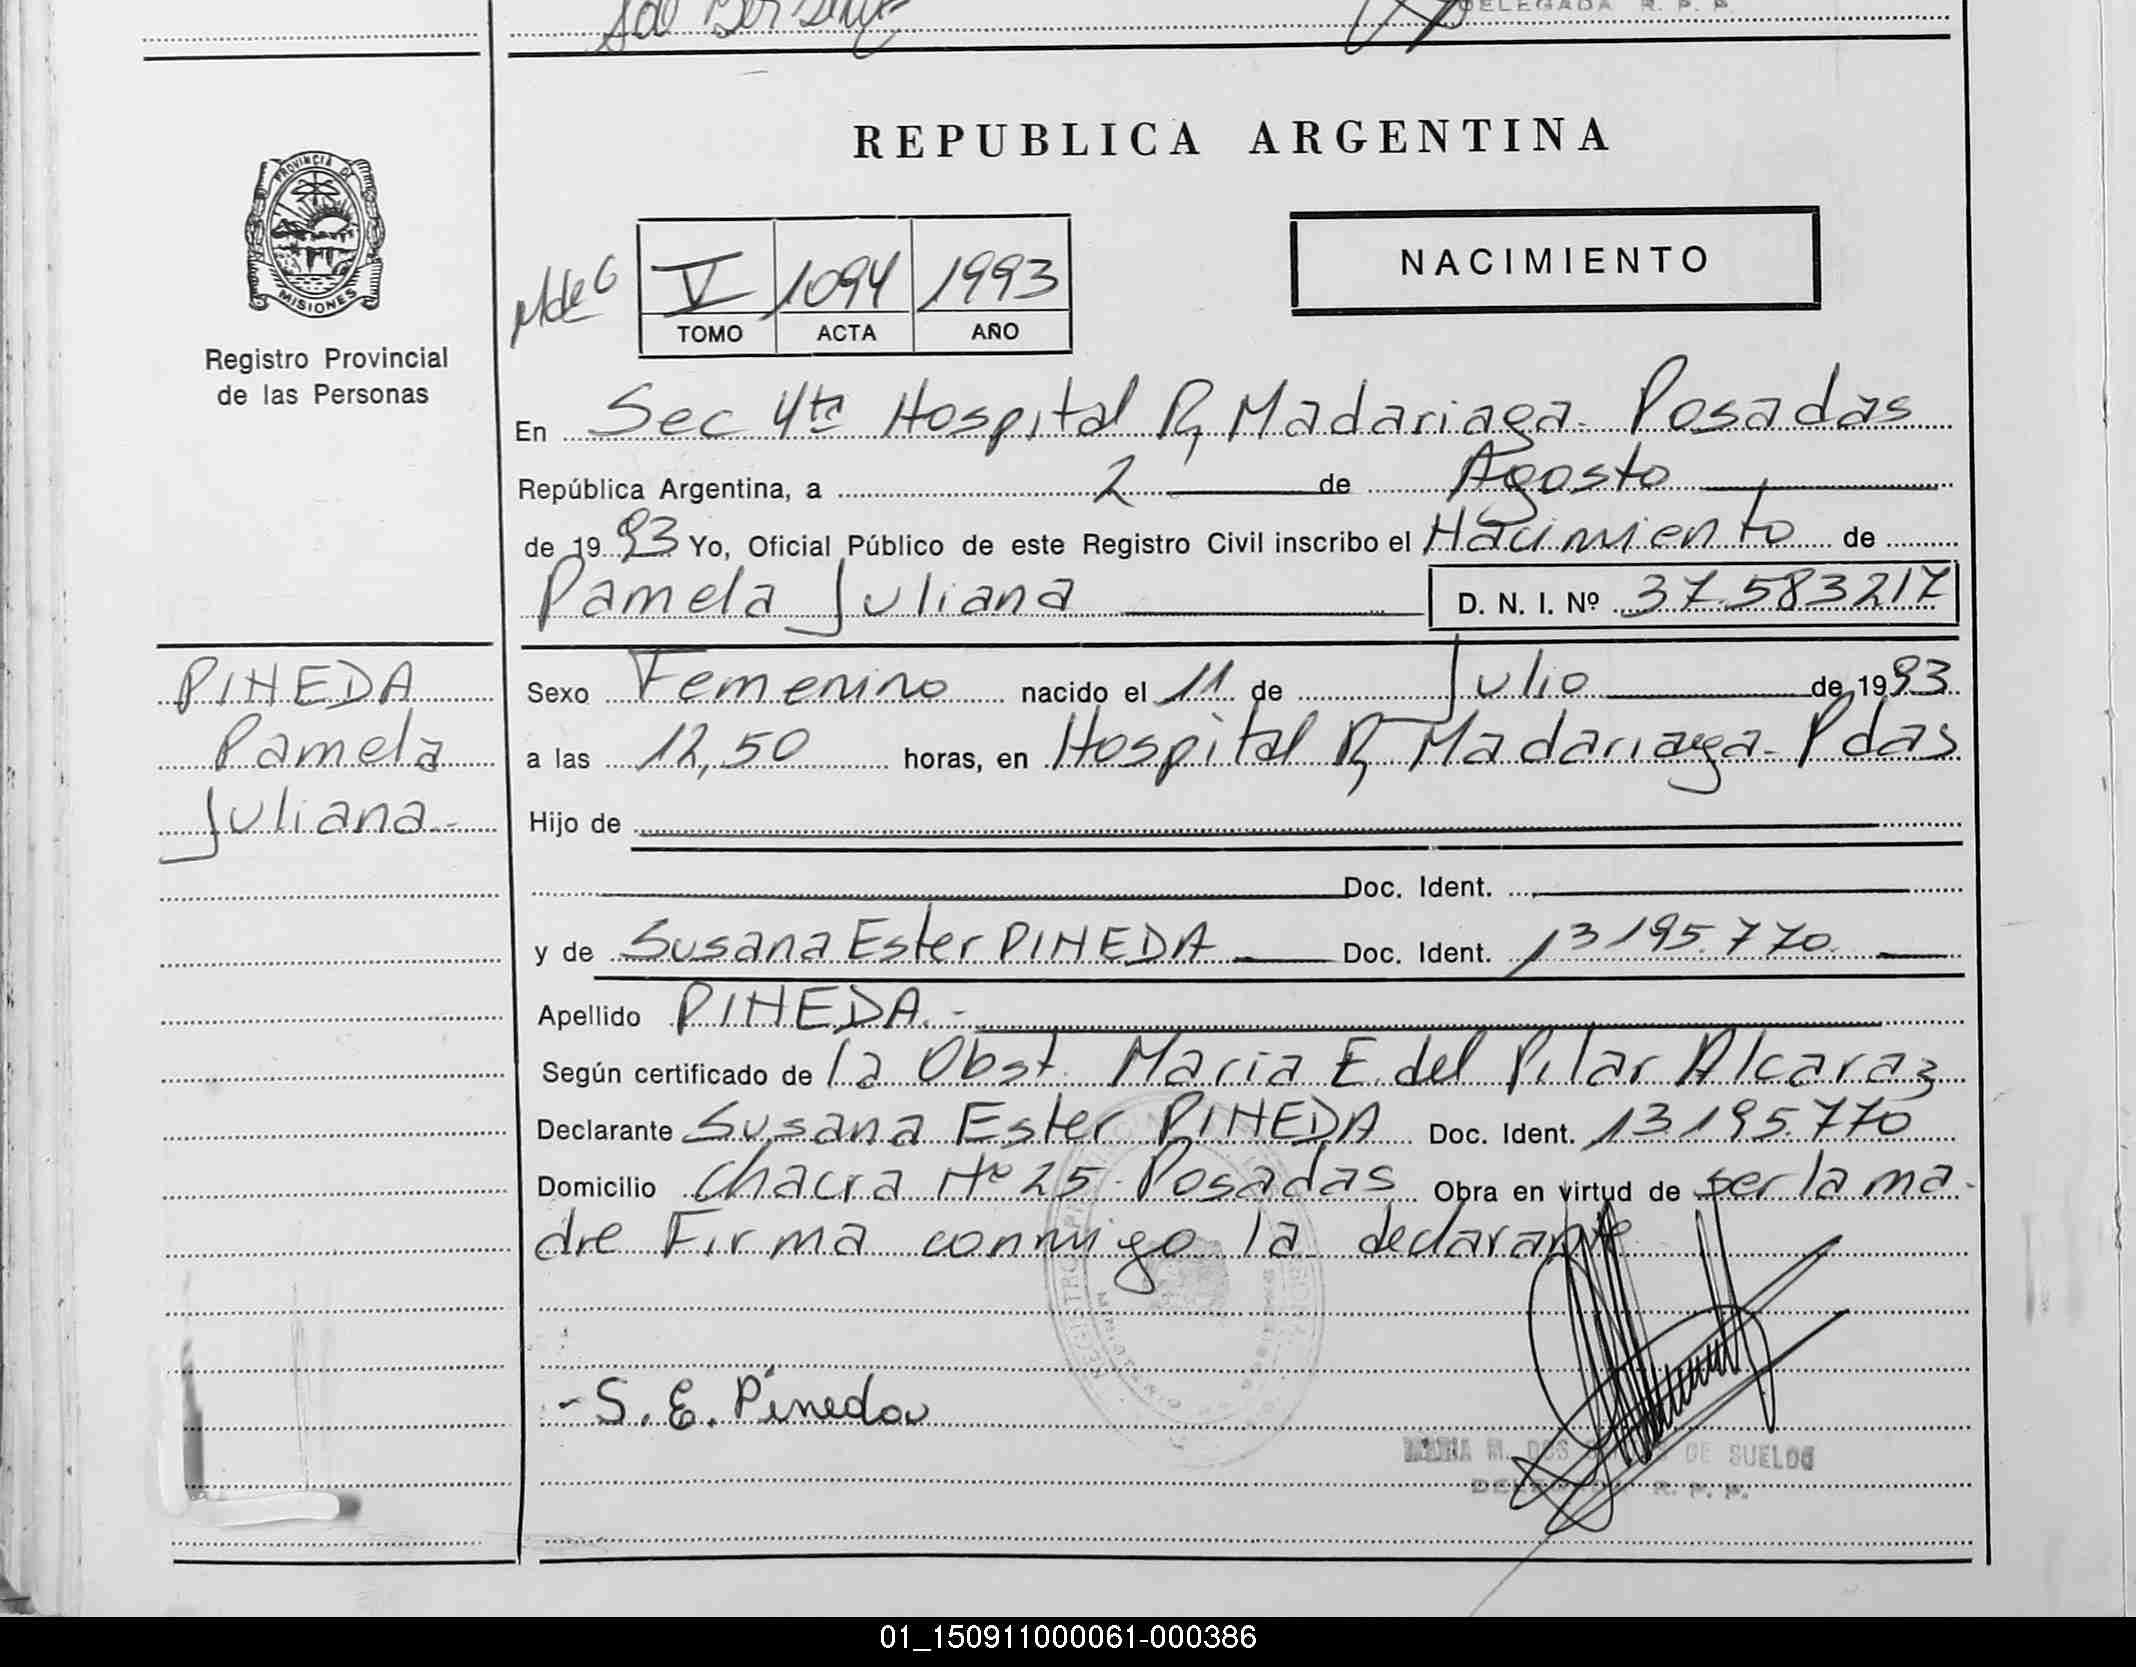 DELEGADA R. P. P.
REPUBLICA ARGENTINA
PROVINCIA DE
MISIONES
Registro Provincial
de las Personas
V 1094 1993
TOMO ACTA AÑO
NACIMIENTO
En Sec 4ta Hospital R. Madariaga - Posadas
República Argentina, a 2 de Agosto
de 1993 Yo, Oficial Público de este Registro Civil inscribo el Nacimiento de
Pamela Juliana D. N. I. Nº 37.583217
PINEDA
Pamela
Juliana -
Sexo Femenino nacido el 11 de Julio de 1993
a las 12,50 horas, en Hospital R. Madariaga - Pdas
Hijo de
Doc. Ident.
y de Susana Ester PINEDA Doc. Ident. 13195.770
Apellido PINEDA. -
Según certificado de la Obst. Maria E. del Pilar Alcaraz
Declarante Susana Ester PINEDA Doc. Ident. 13.195.770
Domicilio Chacra Nº 25 - Posadas Obra en virtud de ser la ma-
dre Firma conmigo la declarante
- S. E. Pineda
MARIA M. DOS DE SUELDO
DELEGADA R. P. P.
01_150911000061-000386